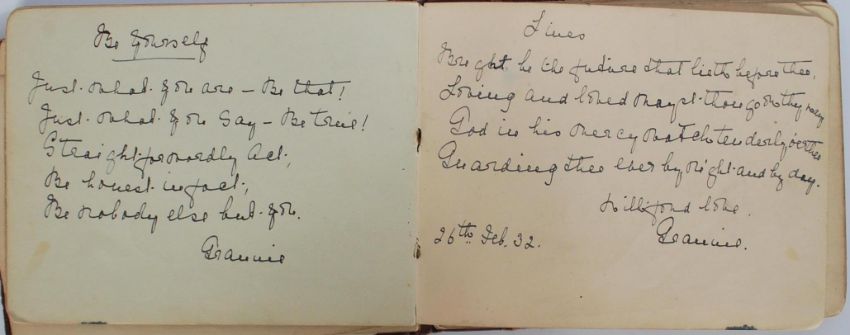 Be Yourself
Just what you are – Be that!
Just what you say – Be true!
Straightforwardly Act,
Be honest in fact,
Be nobody else but you.
Grannie
Lines
Bright be the future that lieth before thee,
Loving and loved mayst thou go on thy way
God in his mercy watch tenderly o'er thee
Guarding thee ever by night and by day.
With fond love.
26th Feb. 32.
Grannie.